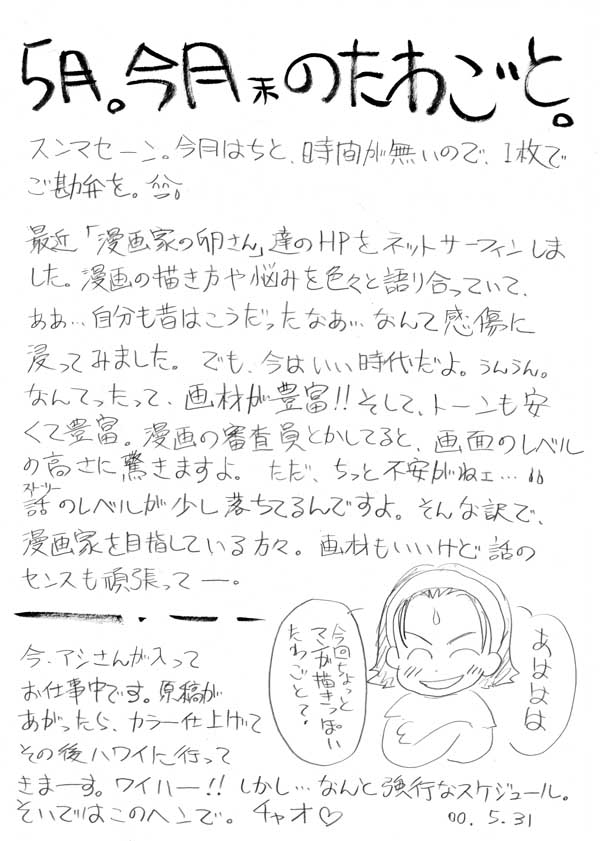 5月。今月末のたわごと。
スンマセーン。今月はちと、時間が無いので、1枚で
ご勘弁を。
最近「漫画家の卵さん」達のHPをネットサーフィンしま
した。漫画の描き方や悩みを色々と語り合っていて、
ああ…自分も昔はこうだったなあ…なんて感傷に
浸ってみました。でも、今はいい時代だよ。うんうん。
なんてったって、画材が豊富!!そして、トーンも安
くて豊富。漫画の審査員とかしてると、画面のレベル
の高さに驚きますよ。ただ、ちっと不安がねェ…
ストーリー
話のレベルが少し落ちてるんですよ。そんな訳で、
漫画家を目指している方々。画材もいいけど話の
センスも頑張ってー。
あははは
今回ちょっと
マンガ描きっぽい
たわごとで。
今、アシさんが入って
お仕事中です。原稿が
あがったら、カラー仕上げて
その後ハワイに行って
きまーす。ワイハー!!しかし…なんと強行なスケジュール。
そいではこのへンで。チャオ♡
00.5.31